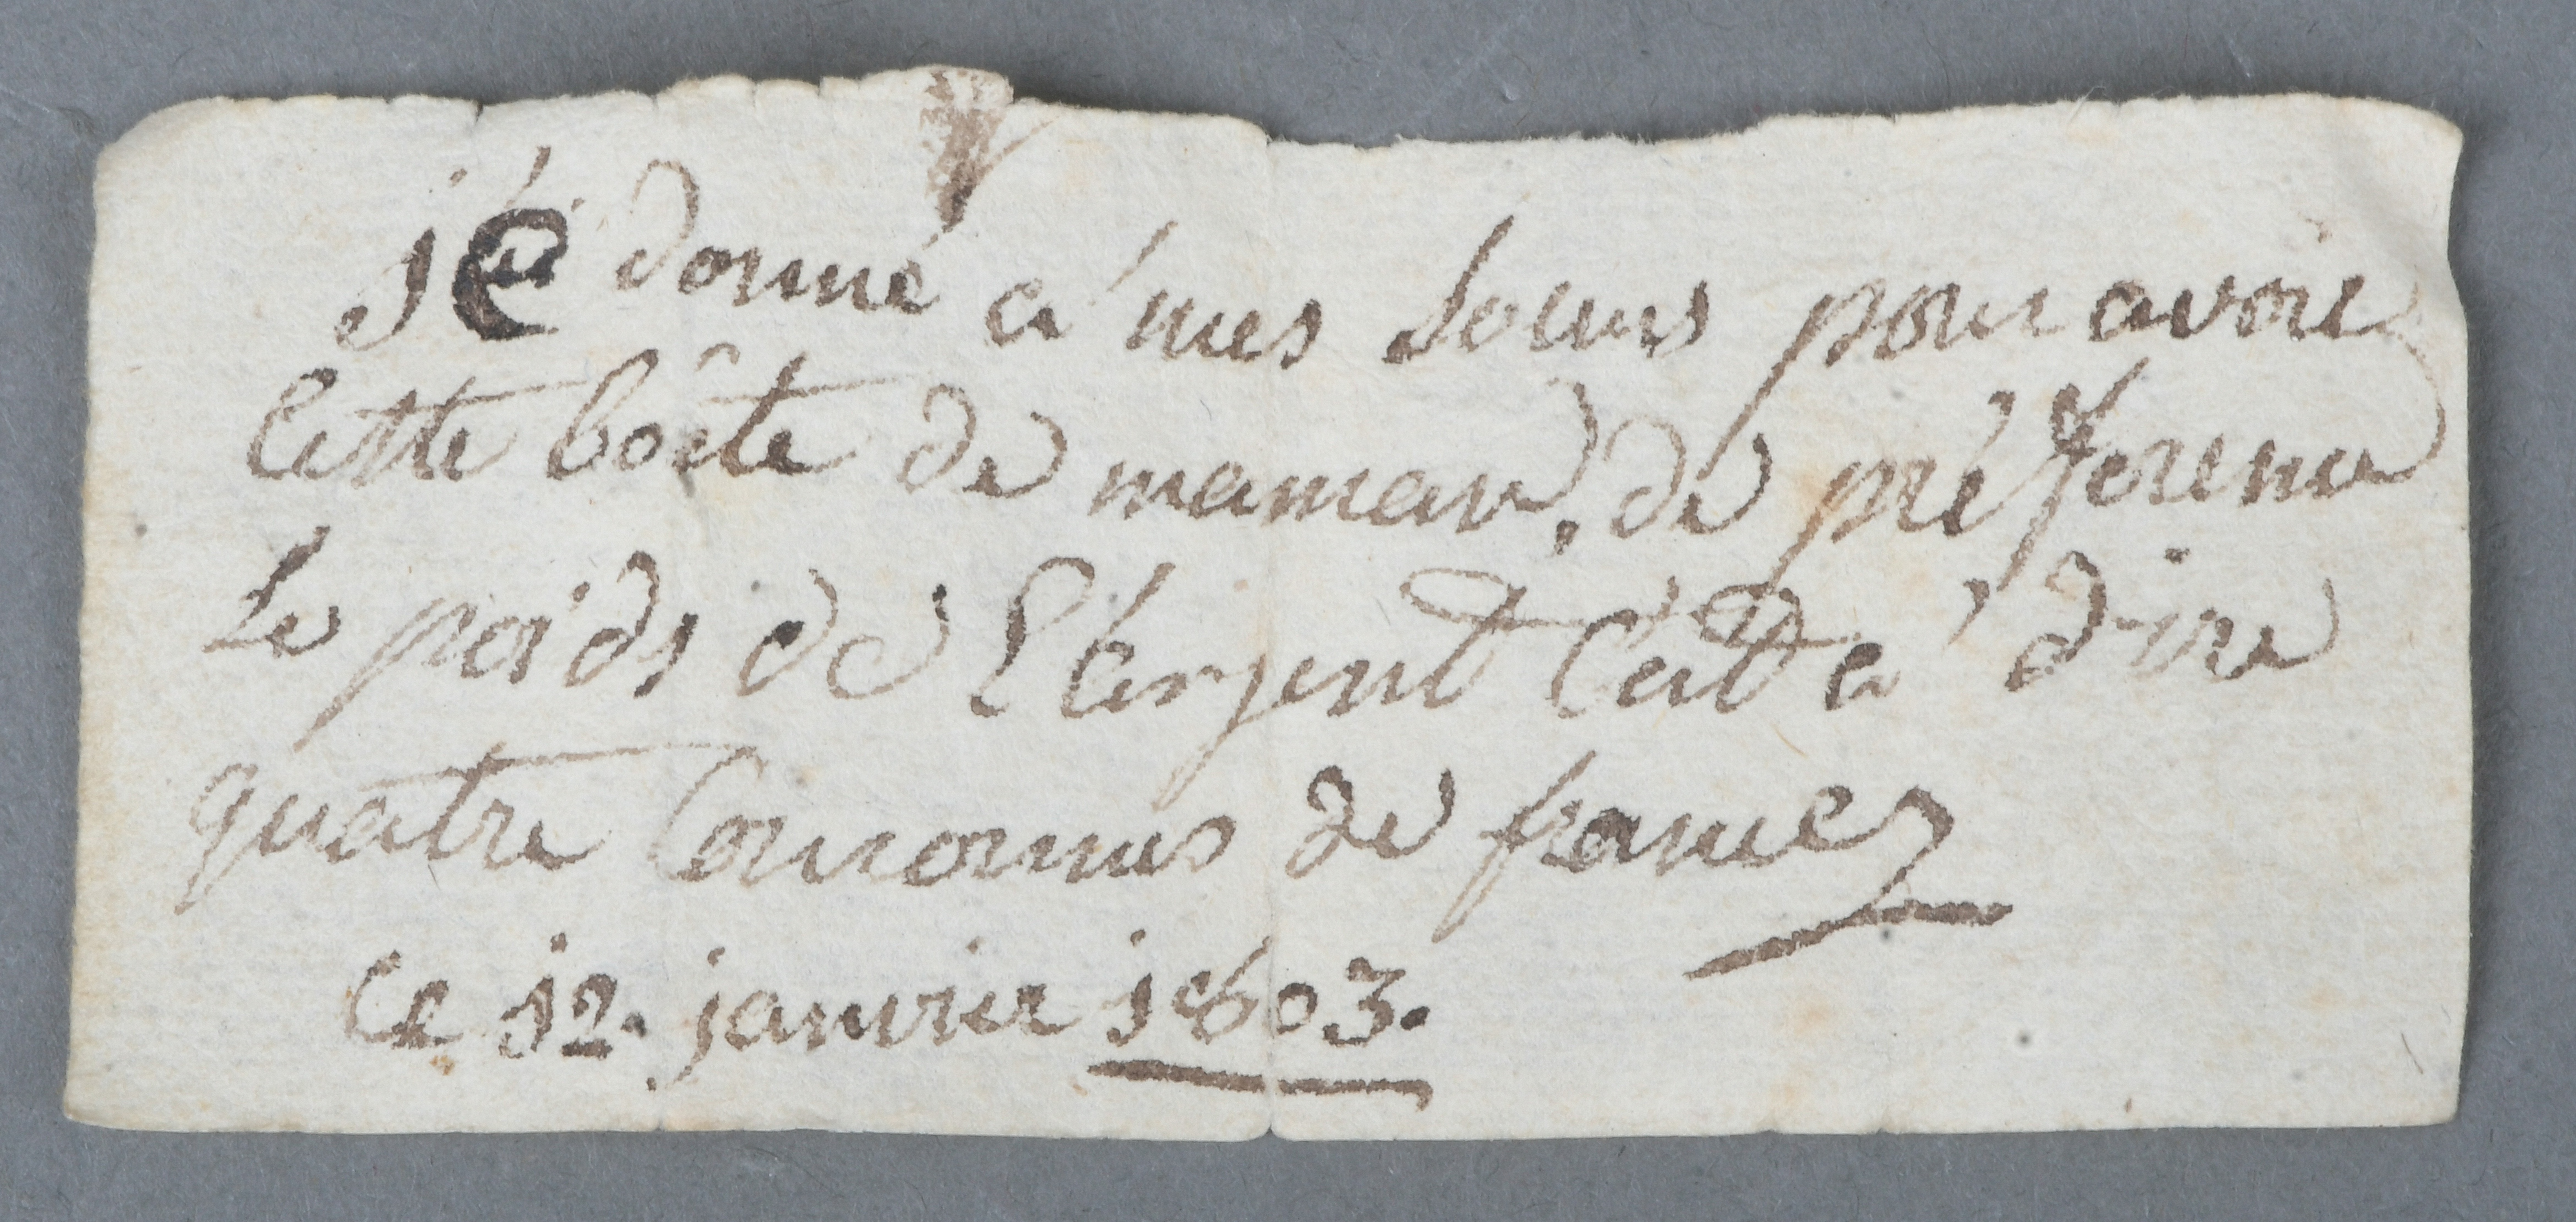 jé donné a' mes Soeurs pour avoir
Cette boîte de maman, de préférence
Le poids de l'argent C'est a' dire
quatre Couronnes de france
Ce 12. janvier 1803.